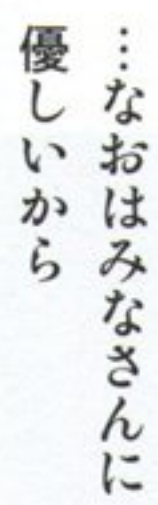 …なおはみなさんに
優しいから